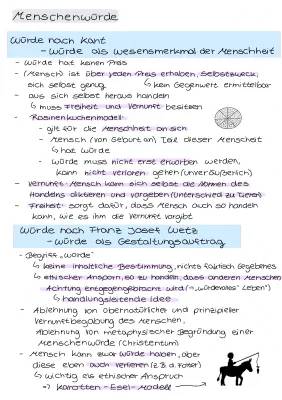 Menschenwürde
Würde nach Kant
- Würde als Wesensmerkmal der Menschheit
- Würde hat keinen Preis
- (Mensch) ist über jeden Preis erhaben, Selbstzweck,
sich selbst genug ↳ kein Gegenwert ermittelbar
- aus sich selbst heraus handeln
↳ muss Freiheit und Vernunft besitzen
- Rosinenkuchenmodell:
- gilt für die Menschheit an sich
- Mensch (von Geburt an) Teil dieser Menscheit
↳ hat Würde
- Würde muss nicht erst erworben werden,
kann nicht verloren gehen (unveräußerlich)
- Vernunft: Mensch kann sich selbst die Normen des
Handelns diktieren und vorgeben (Unterschied zu Tieren)
- Freiheit: sorgt dafür, dass Mensch auch so handeln
kann, wie es ihm die Vernunft vorgibt
Würde nach Franz Josef Wetz
- Würde als Gestaltungsauftrag
- Begriff „Würde"
↳ keine inhaltliche Bestimmung, nichts faktisch Gegebenes
↳ ethischer Ansporn, so zu handeln, dass anderen Menschen
Achtung entgegengebracht wird (→ „würdevolles" Leben")
↳ handlungsleitende Idee
- Ablehnung von übernatürlicher und prinzipieller
Vernunftbegabung des Menschen,
Ablehnung von metaphysischer Begründung einer
Menschenwürde (Christentum)
- Mensch kann zwar Würde haben, aber
diese eben auch verlieren (z.B. d. Folter)
↳ wichtig als ethischer Anspruch
=> Karotten-Esel-Modell